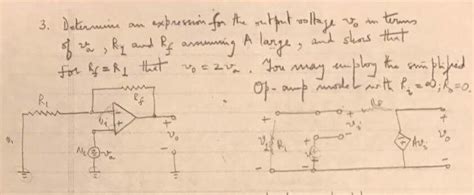 3. Determine an expression for the output voltage v₀ in terms
of vₐ, R₁ and R_f assuming A large, and show that
for R_f = R₁ that v₀ = 2vₐ. You may employ the simplified
Op-amp model with Rᵢ = ∞; R₀ = 0.
R₁ R_f R_f
vᵢ + vᵢ +
vₐ v₀ R₁ Avᵢ v₀